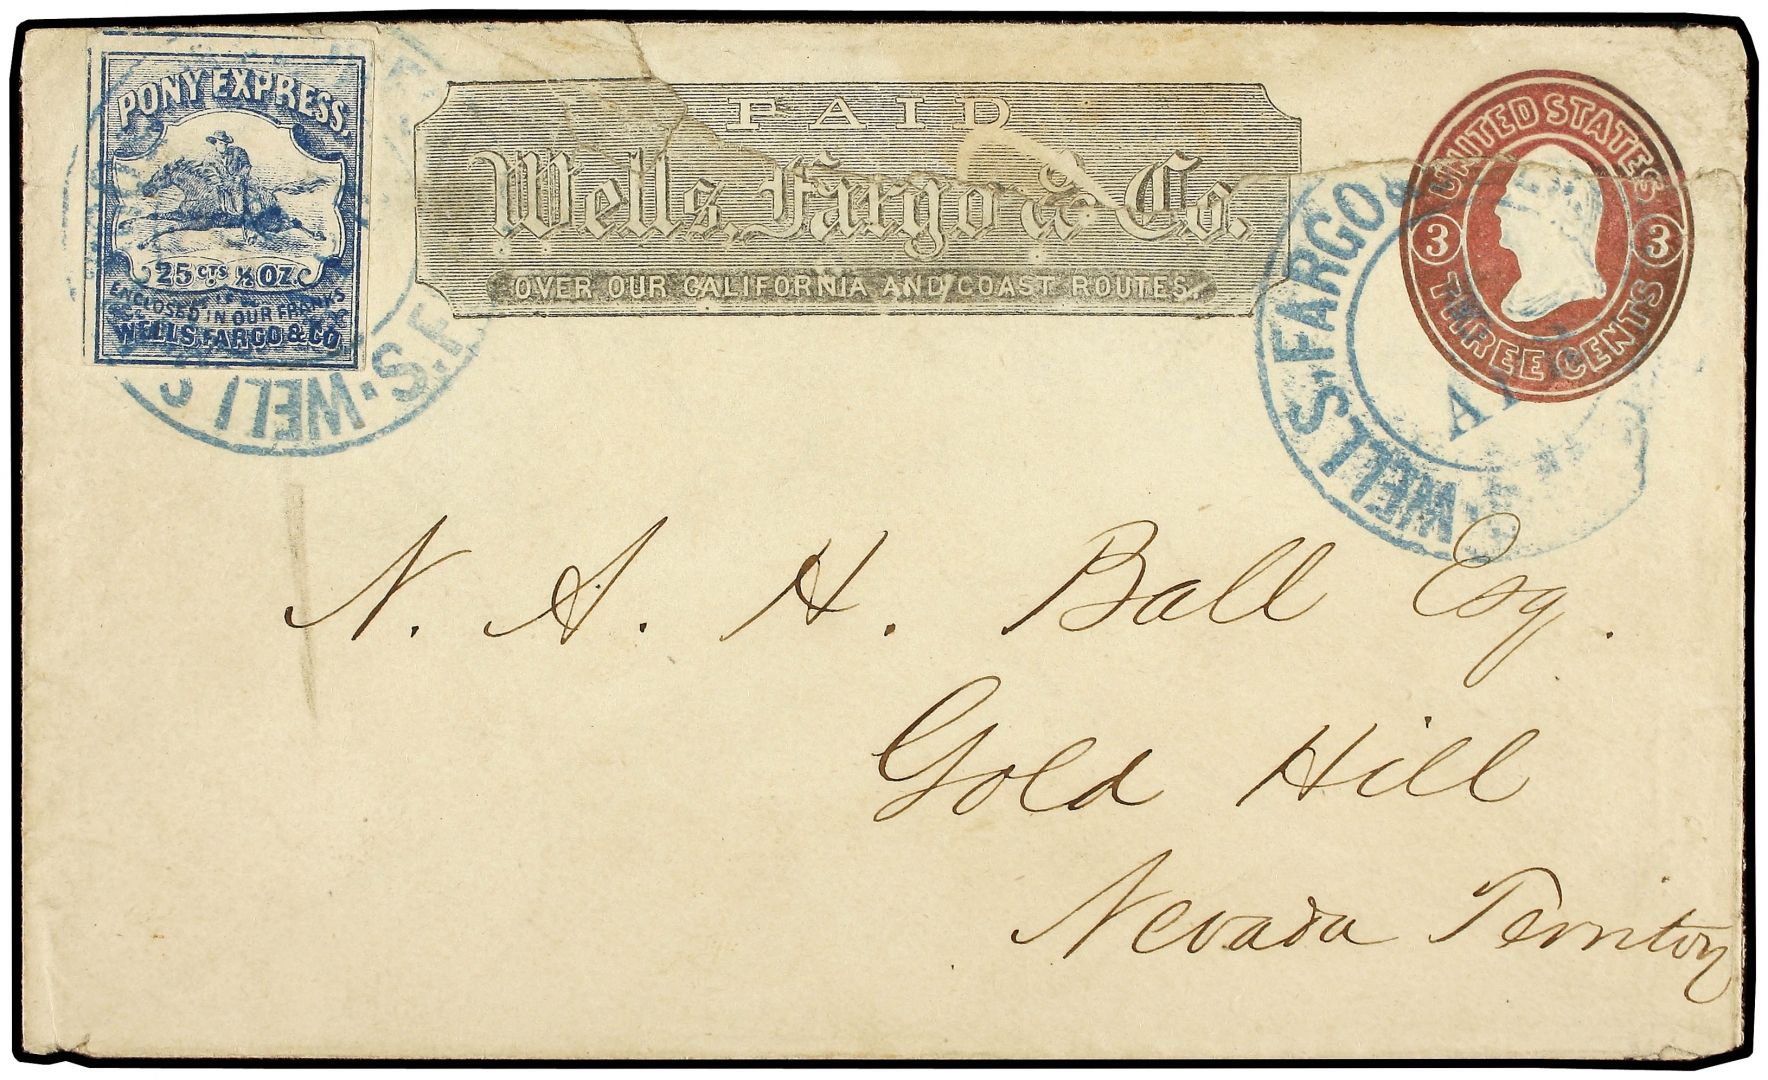 PONY EXPRESS.
25 CTS ½ OZ.
ENCLOSED IN OUR FRANKS
WELLS, FARGO & CO.
WELLS
S.F.
PAID
Wells, Fargo & Co.
OVER OUR CALIFORNIA AND COAST ROUTES.
UNITED STATES
3 3
THREE CENTS
WELLS, FARGO &
N. A. H. Ball Esq.
Gold Hill
Nevada Territory